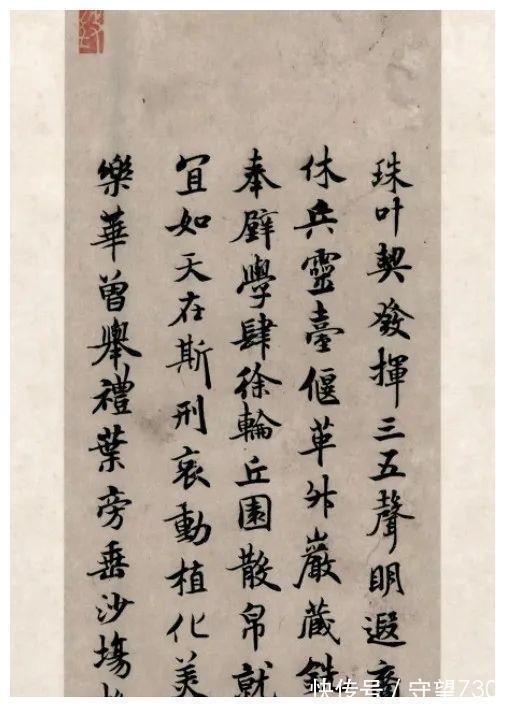 珠叶契發揮三五聲明遐
休兵靈臺偃革巖藏
奉璧學肆徐輪丘園散帛就
宜如天在斯刑哀動植化美
樂華曾舉禮葉旁垂沙塲
快传号 / 守望730